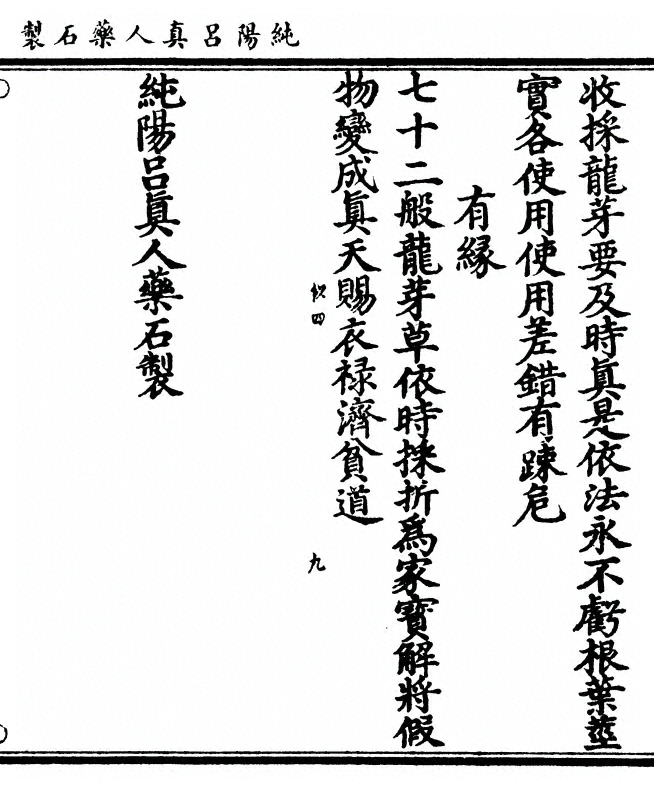 純陽呂真人藥石製
收採龍芽要及時真是依法永不虧根葉莖
實各使用使用差錯有踈危
有緣
七十二般龍芽草依時採折爲家寶解將假
物變成真天賜衣禄濟貧道
似四
九
純陽呂眞人藥石製